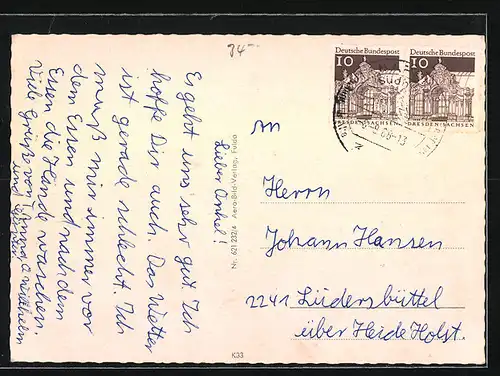 34-
Deutsche Bundespost
10
DRESDEN/SACHSEN
Deutsche Bundespost
10
DRESDEN/SACHSEN
Lieber Onkel!
Es geht uns sehr gut. Ich
hoffe Dir auch. Das Wetter
ist gerade schlecht. Ich
muß mir immer vor
dem Essen und nach dem
Essen die Hände waschen.
Viele Grüße von
und
Nr. 621 232/4 Aero-Bild-Verlag, Fulda
K33
An
Herrn
Johann Hansen
2241 Lüdersbüttel
über Heide Holst.